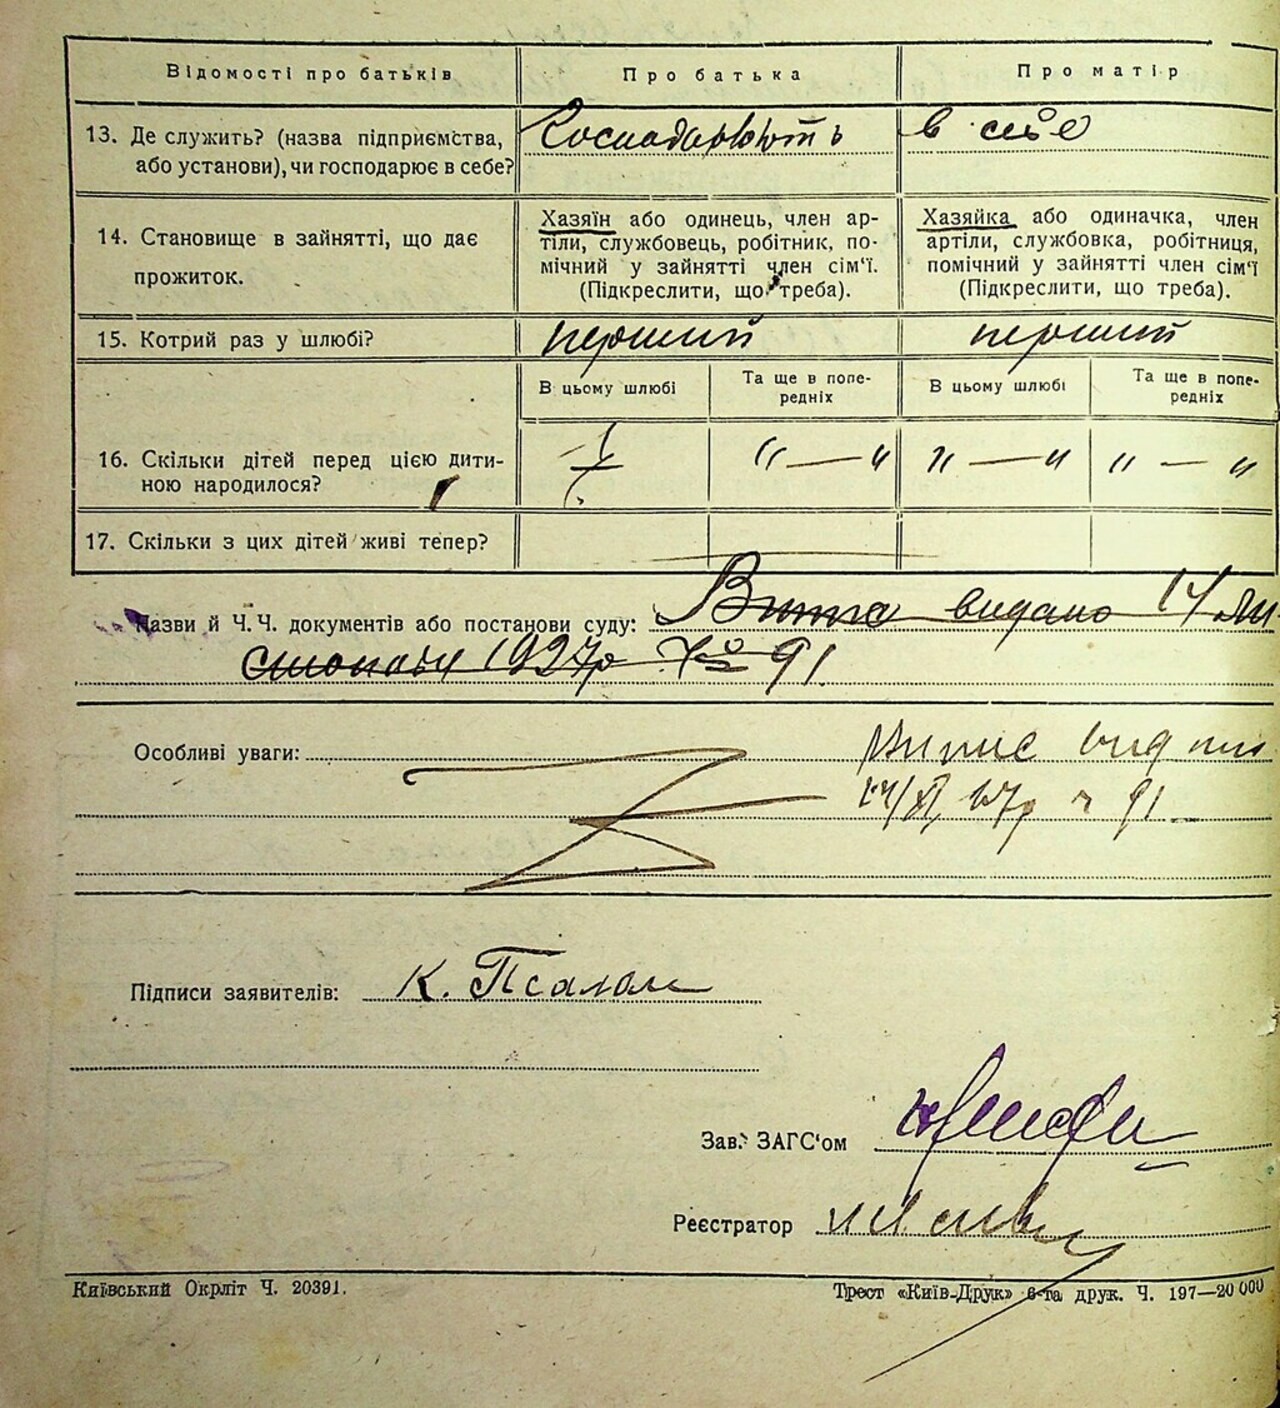 Відомості про батьків
Про батька
Про матір
13. Де служить? (назва підприємства, або установи), чи господарює в себе?
Господарюють
в себе
14. Становище в зайнятті, що дає прожиток.
Хазяїн або одинець, член ар-
тіли, службовець, робітник, по-
мічний у зайнятті член сім‘ї.
(Підкреслити, що треба).
Хазяйка або одиначка, член
артіли, службовка, робітниця,
помічний у зайнятті член сім‘ї
(Підкреслити, що треба).
15. Котрий раз у шлюбі?
перший
перший
В цьому шлюбі
Та ще в попе-
редніх
В цьому шлюбі
Та ще в попе-
редніх
16. Скільки дітей перед цією дити-
ною народилося?
„ — „
„ — „
„ — „
17. Скільки з цих дітей живі тепер?
Назви й Ч.Ч. документів або постанови суду: видано 14 Ли
стопада 1927р № 91
Особливі уваги: Випис
91
Підписи заявителів: К. Псалом
Зав. ЗАГС‘ом
Реєстратор
Київський Окрліт Ч. 20391.
Трест «Київ-Друк» 6-та друк. Ч. 197—20 000